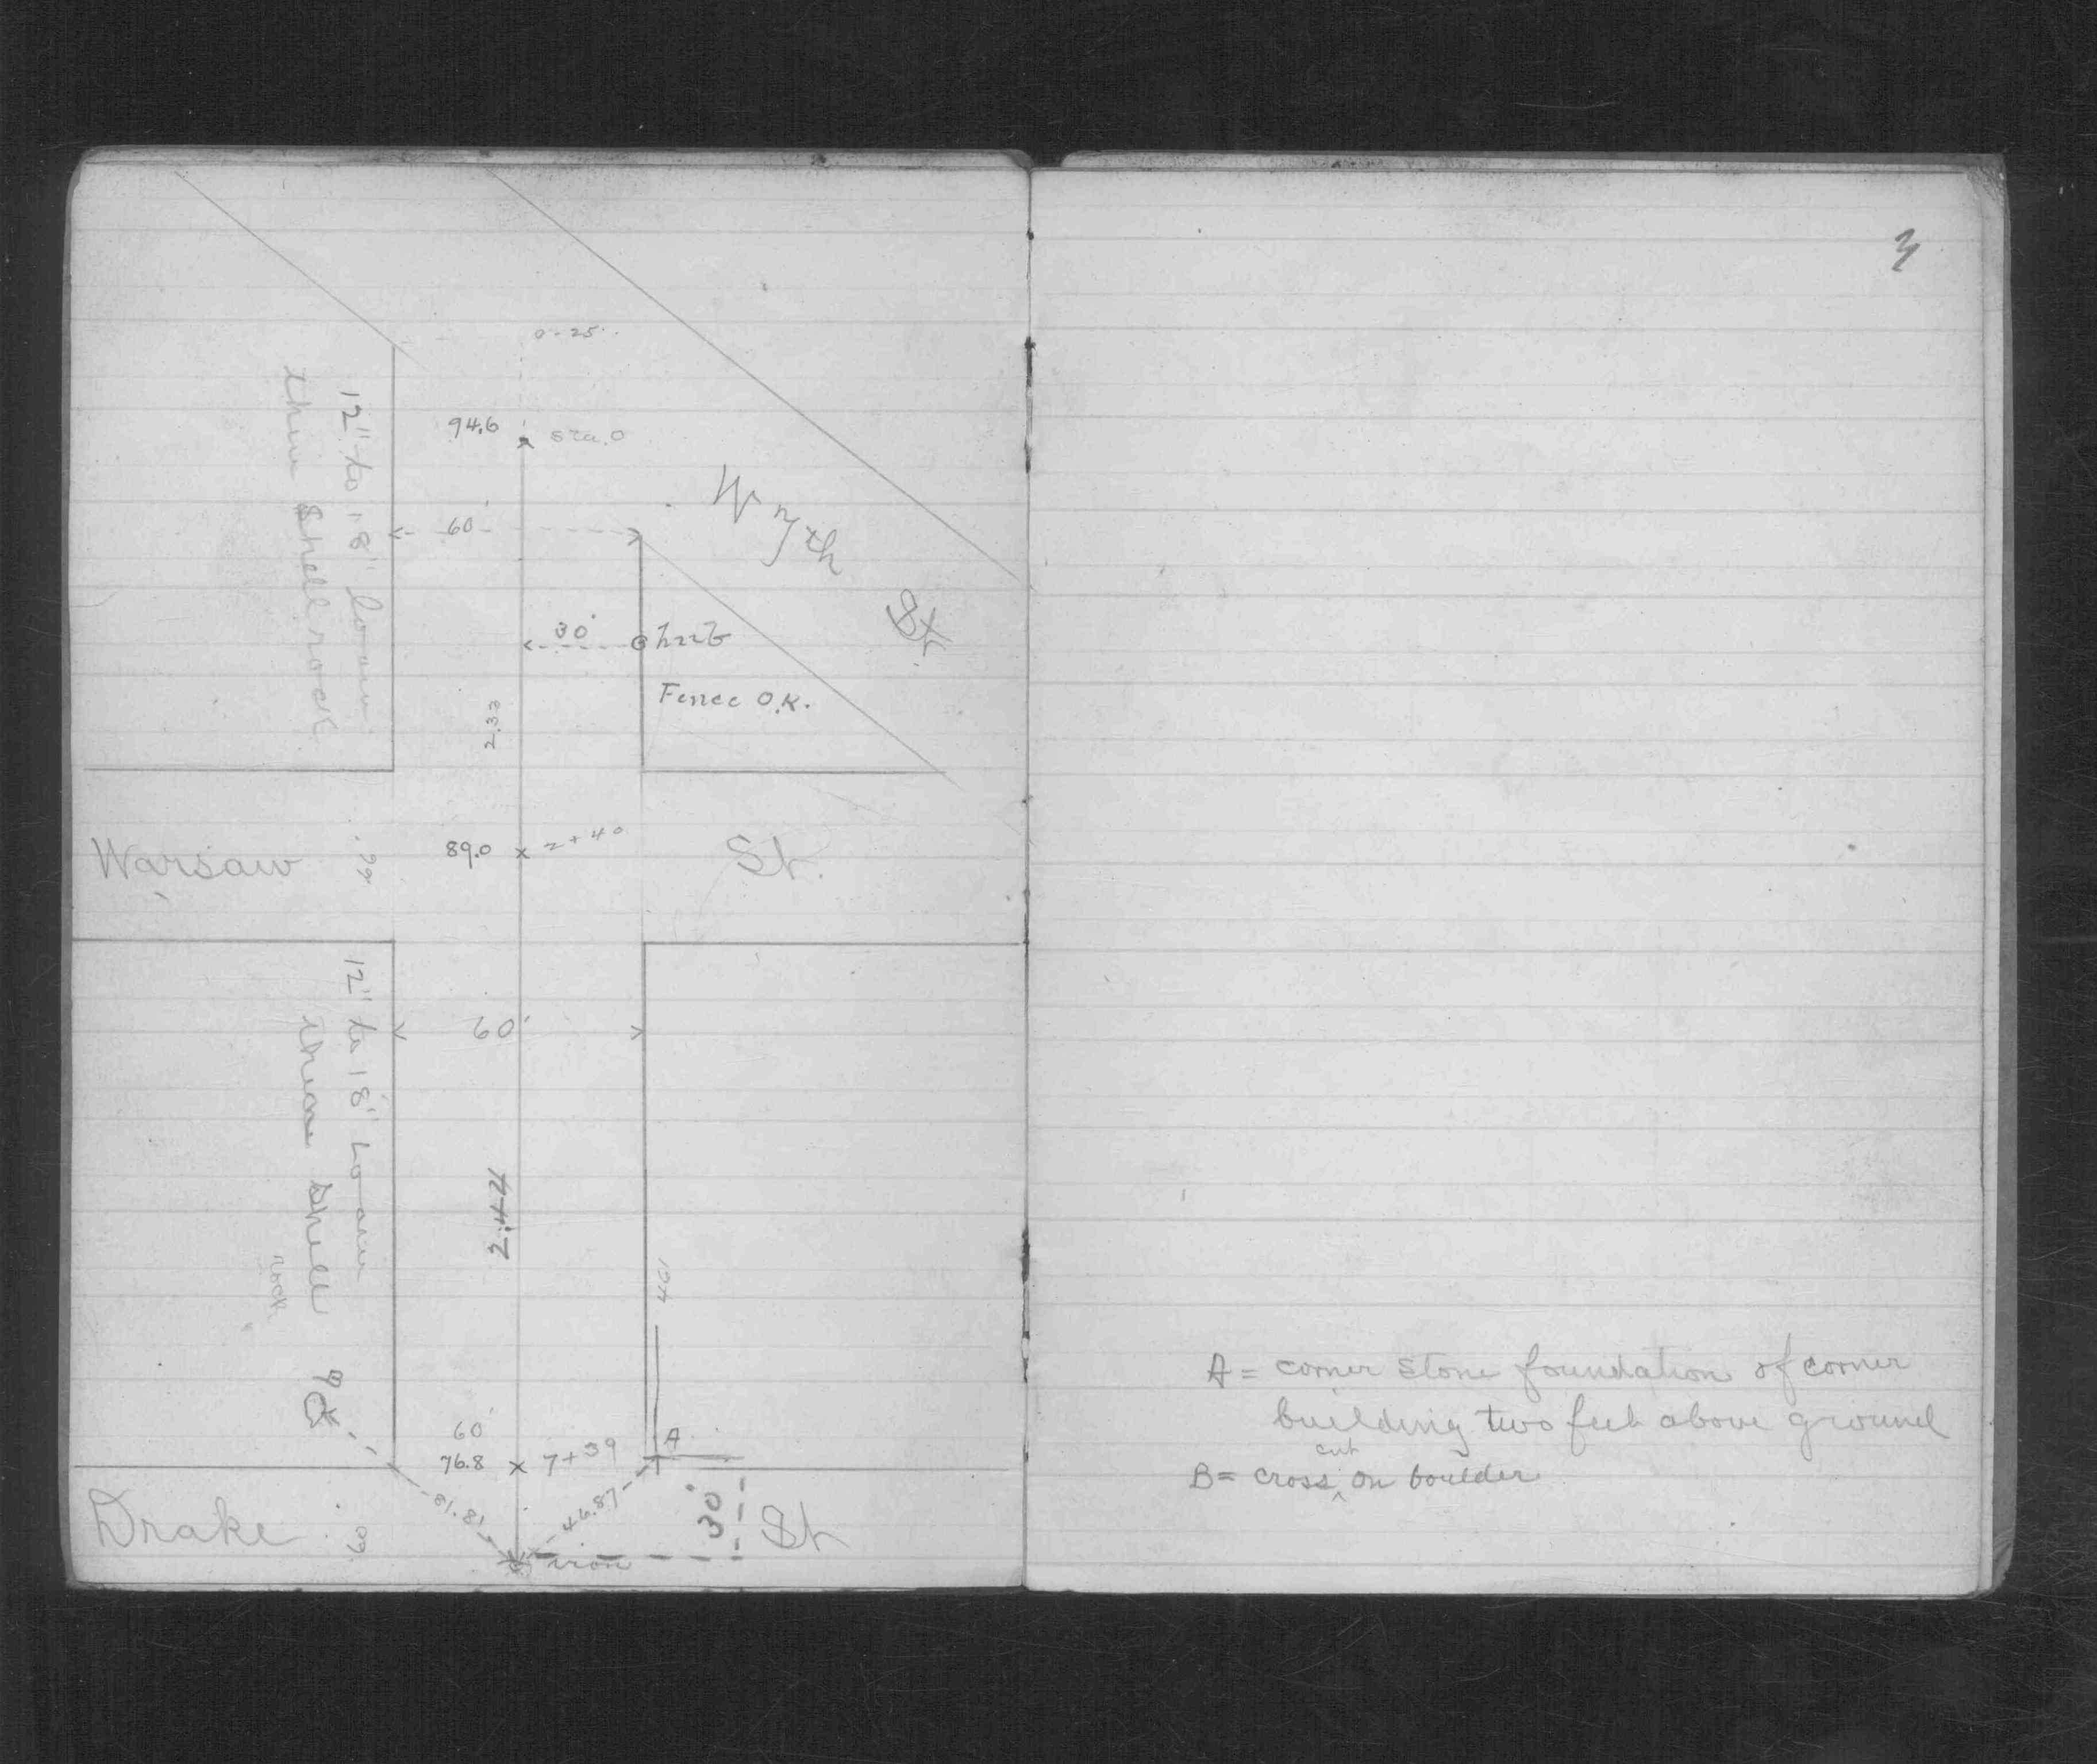 0-25
94.6 Sta. 0
60'
Wyth St.
30'
hub
Fence O.K.
12" to 18" loam
then Shell rock
2.33
Warsaw St.
89.0 2+40
60'
12" to 18" Loam
then Shell
rock
2.44
461
B
60'
76.8 7+39
A
81.81
46.87
30'
Drake St
60'
iron
3
A = corner stone foundation of corner
building two feet above ground
B = cross cut on boulder